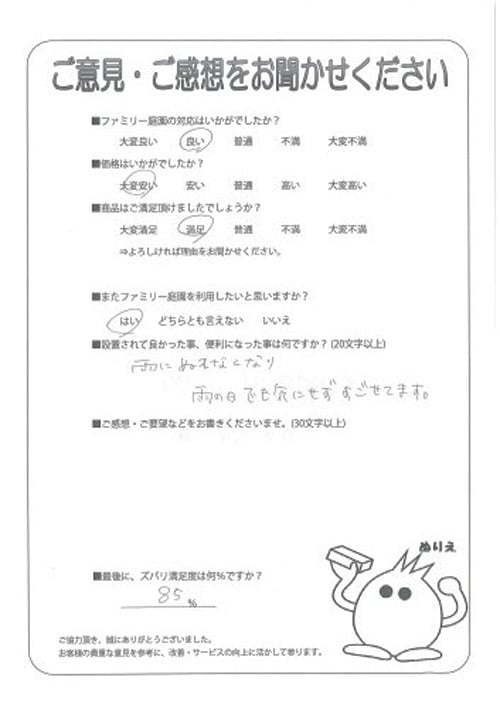 ご意見・ご感想をお聞かせください
■ファミリー庭園の対応はいかがでしたか？
大変良い 良い 普通 不満 大変不満
■価格はいかがでしたか？
大変安い 安い 普通 高い 大変高い
■商品はご満足頂けましたでしょうか？
大変満足 満足 普通 不満 大変不満
⇒よろしければ理由をお聞かせください。
■またファミリー庭園を利用したいと思いますか？
はい どちらとも言えない いいえ
■設置されて良かった事、便利になった事は何ですか？(20文字以上)
雨にぬれなくなり
雨の日でも気にせずすごせてます。
■ご感想・ご要望などをお書きくださいませ。(30文字以上)
ぬりえ
■最後に、ズバリ満足度は何%ですか？
85%
ご協力頂き、誠にありがとうございました。
お客様の貴重な意見を参考に、改善・サービスの向上に活かして参ります。